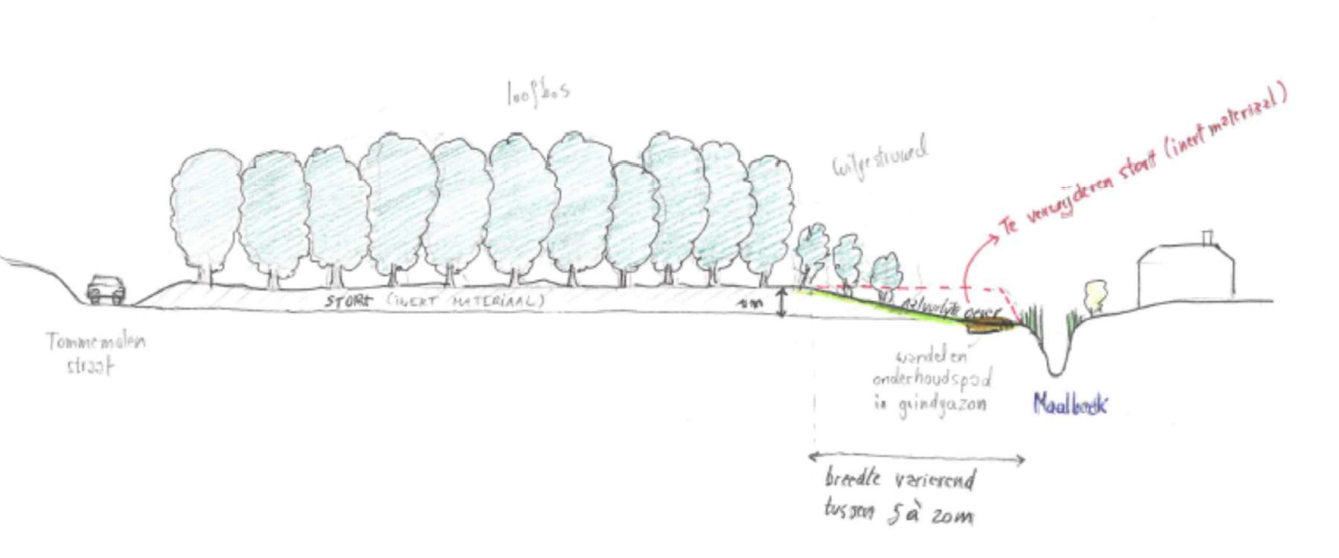 loofbos
wilgestruweel
Te verwijderen stort (inert materiaal)
STORT (INERT MATERIAAL)
natuurlijke oever
Tommemolen
straat
wandel en
onderhoudspad
in grindgazon
Maalbeek
breedte variërend
tussen 5 à 20m